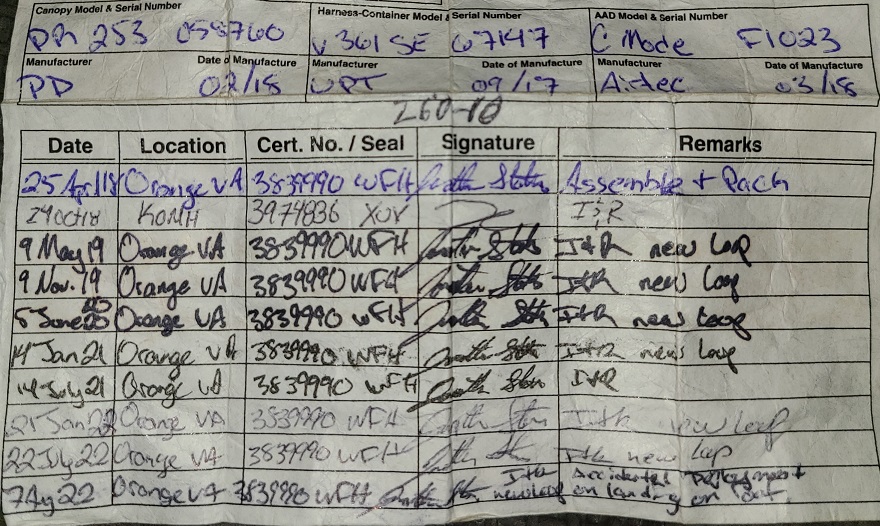 Canopy Model & Serial Number Harness-Container Model & Serial Number AAD Model & Serial Number
PR 253 058760 V361 SE 67147 C Mode F1023
Manufacturer Date of Manufacture Manufacturer Date of Manufacture Manufacturer Date of Manufacture
PD 02/18 UPT 09/17 Airtec 03/18
260-10
Date Location Cert. No. / Seal Signature Remarks
25 Apr 18 Orange VA 3839990 WFH Assemble + Pack
24 Oct 18 KOMH 3974836 XUV I&R
9 May 19 Orange VA 3839990 WFH I&R new loop
9 Nov. 19 Orange VA 3839990 WFH I&R new loop
5 June 20 Orange VA 3839990 WFH I&R new loop
14 Jan 21 Orange VA 3839990 WFH I&R new loop
14 July 21 Orange VA 3839990 WFH I&R
21 Jan 22 Orange VA 3839990 WFH I&R new loop
22 July 22 Orange VA 3839990 WFH I&R new loop
7 Aug 22 Orange VA 3839990 WFH I&R new loop Accidental Deployment on landing on